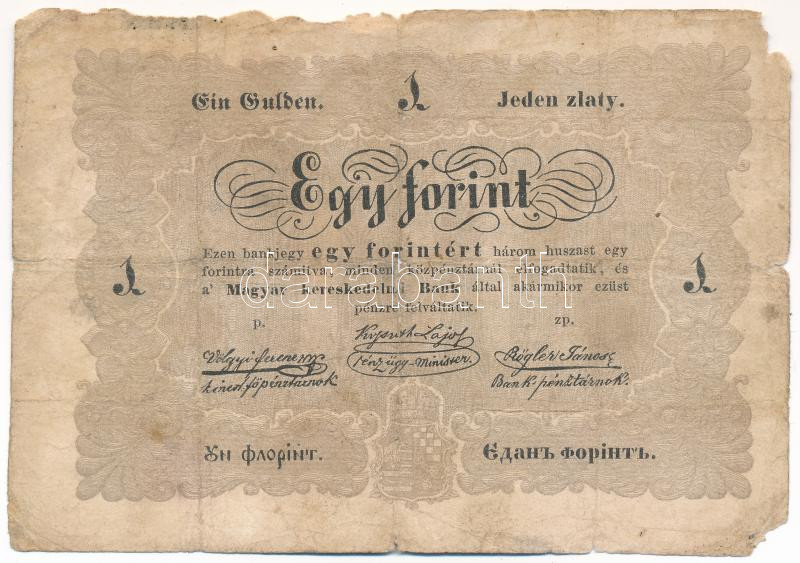 Ein Gulden. 1 Jeden zlaty.
Egy forint
Ezen bankjegy egy forintért három huszast egy
forintra számitva, minden közpénztárnál elfogadtatik, és
1 a' Magyar kereskedelmi Bank által akármikor ezüst 1
pénzre felváltatik.
p. zp.
Kossuth Lajos
Völgyi Ferencz pénzügy-minister. Rögler János
kincst. főpénztárnok Bank-pénztárnok.
Ун флорінт. Єданъ форінтъ.
darabanth